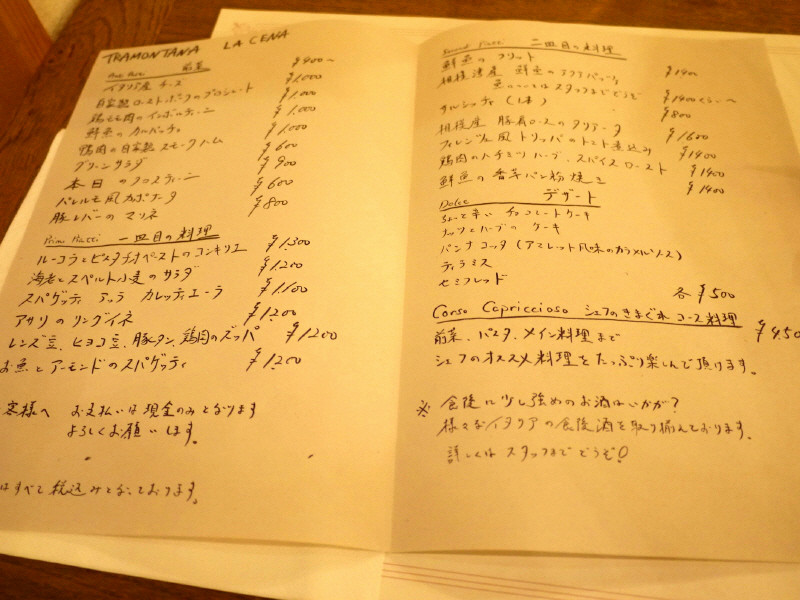 TRAMONTANA LA CENA
前菜 ¥900~
イタリア産 チーズ ¥1.000
自家製ローストポークのプロシュート ¥1.000
鶏モモ肉のインボルティーニ ¥1.000
鮮魚の カルパッチョ ¥1.000
鴨肉の自家製 スモークハム ¥600
グリーンサラダ ¥900
本日 のクロスティーニ ¥600
パレルモ風 カポナータ ¥800
豚レバーの マリネ
Primi Piatti 一皿目の料理
ルーコラとピスタチオペーストのコンキリエ ¥1.300
海老とスペルト小麦のサラダ ¥1.200
スパゲッティ アッラ カレッティエーラ ¥1.100
アサリのリングイネ ¥1200
レンズ豆、ヒヨコ豆、豚タン、鶏肉のズッパ ¥1200
お魚とアーモンドのスパゲッティ ¥1.200
客様へ お支払いは現金のみとなります
よろしくお願いします。
はすべて税込みとなっております。
二皿目の料理
鮮魚の フリット ¥1400
相模湾産 鮮魚のアクアパッツァ
魚についてはスタッフまでどうぞ ¥1400くらい~
サルシッチャ (1本) ¥800
相模産 豚肩ロースのタリアータ ¥1600
フィレンツェ風 トリッパのトマト煮込み ¥1400
鶏肉のハチミツ ハーブ、スパイスロースト ¥1400
鮮魚の 香草パン粉 焼き ¥1400
Dolce デザート
ちょっと辛い チョコレートケーキ
ナッツとハーブの ケーキ
パンナコッタ (アマレット風味のカラメルソース)
ティラミス
セミフレッド
各 ¥500
Corso Capriccioso シェフのきまぐれ コース料理
前菜、パスタ、メイン料理まで ¥4.50
シェフのオススメ料理をたっぷり楽しんで頂けます。
※ 食後に少し強めのお酒はいかが?
様々なイタリアの食後酒を取り揃えております。
詳しくは スタッフまで どうぞ!